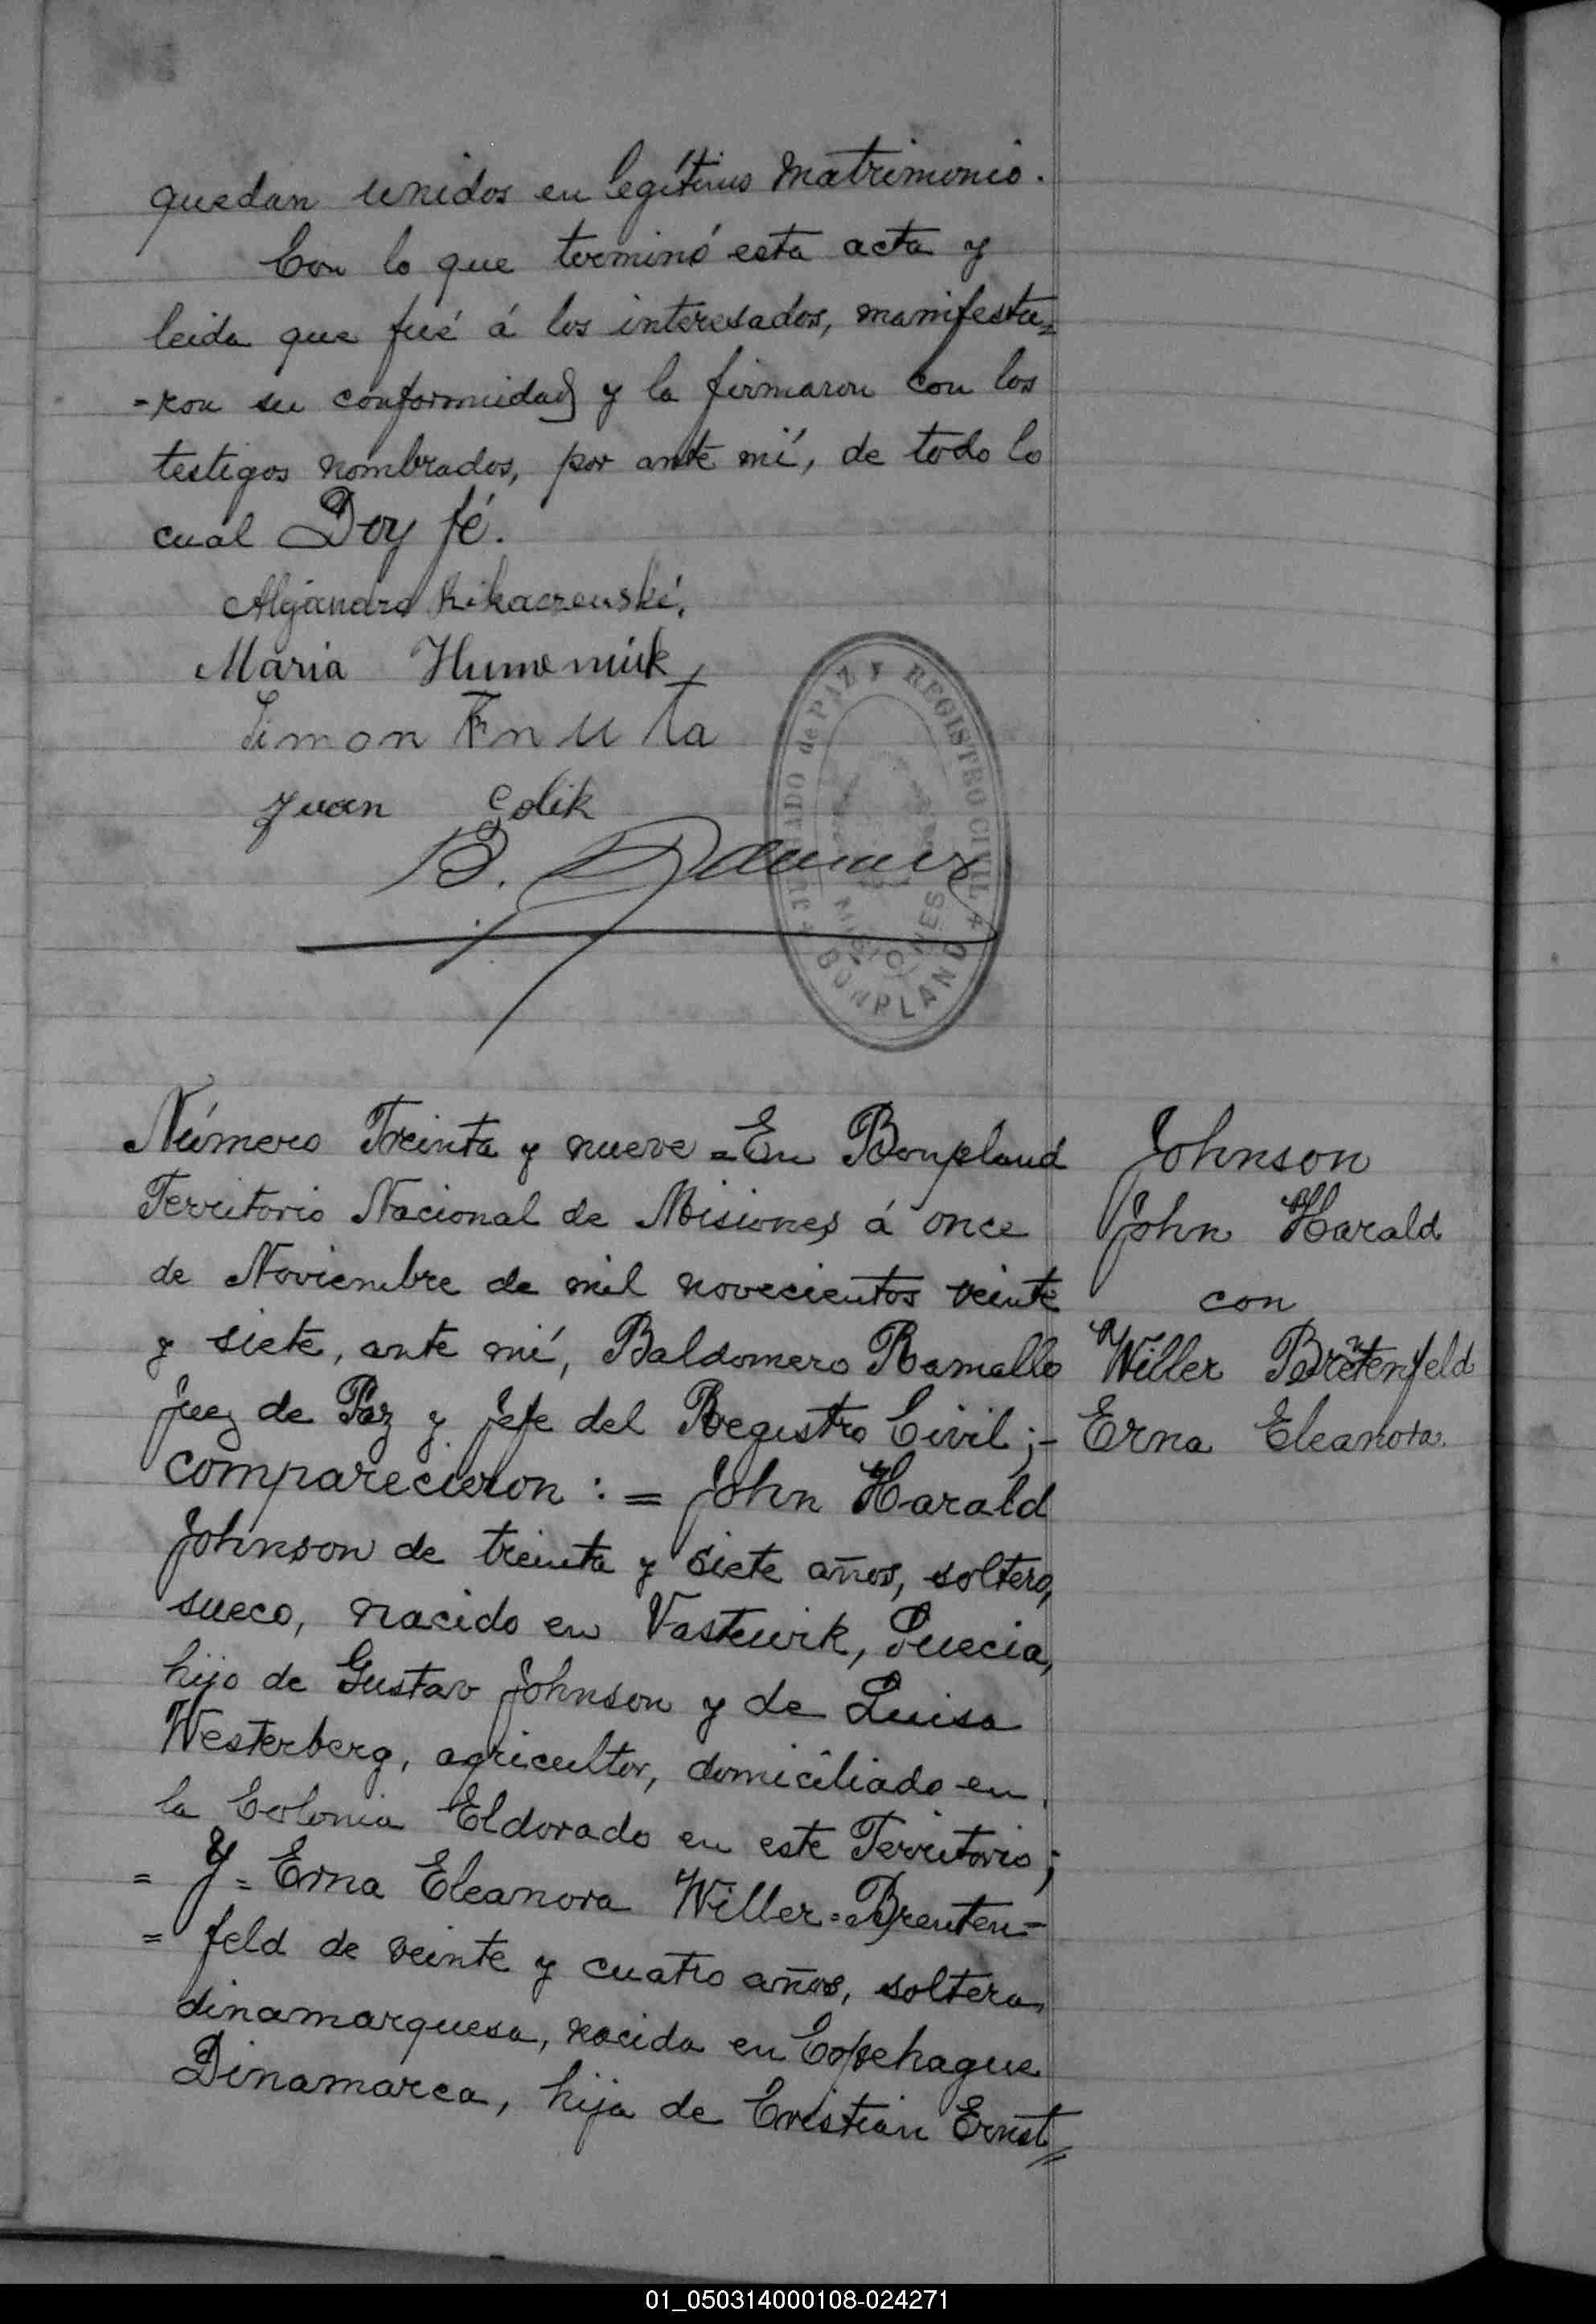 quedan unidos en legítimo matrimonio.
Con lo que terminó esta acta y
leida que fué á los interesados, manifesta=
-ron su conformidad y la firmaron con los
testigos nombrados, por ante mí, de todo lo
cual Doy fé.
Alejandro
Maria Humeniuk
Simon
Juan Golik
B.
JUZGADO de PAZ Y REGISTRO CIVIL
MISIONES
BONPLAND
Número Treinta y nueve = En Bonpland
Territorio Nacional de Misiones á once
de Noviembre de mil novecientos veinte
y siete, ante mí, Baldomero Ramallo
Juez de Paz y Jefe del Registro Civil ;-
comparecieron : = John Harald
Johnson de treinta y siete años, soltero,
sueco, nacido en Vastewik, Suecia,
hijo de Gustav Johnson y de Luisa
Westerberg, agricultor, domiciliado en
la Colonia Eldorado en este Territorio;
= Y = Erna Eleanora Willer=Brenten-
= feld de veinte y cuatro años, soltera,
dinamarquesa, nacida en Copehague
Dinamarca, hija de Cristian Ernst
Johnson
John Harald
con
Willer Bretenfeld
Erna Eleanora.
01_050314000108-024271